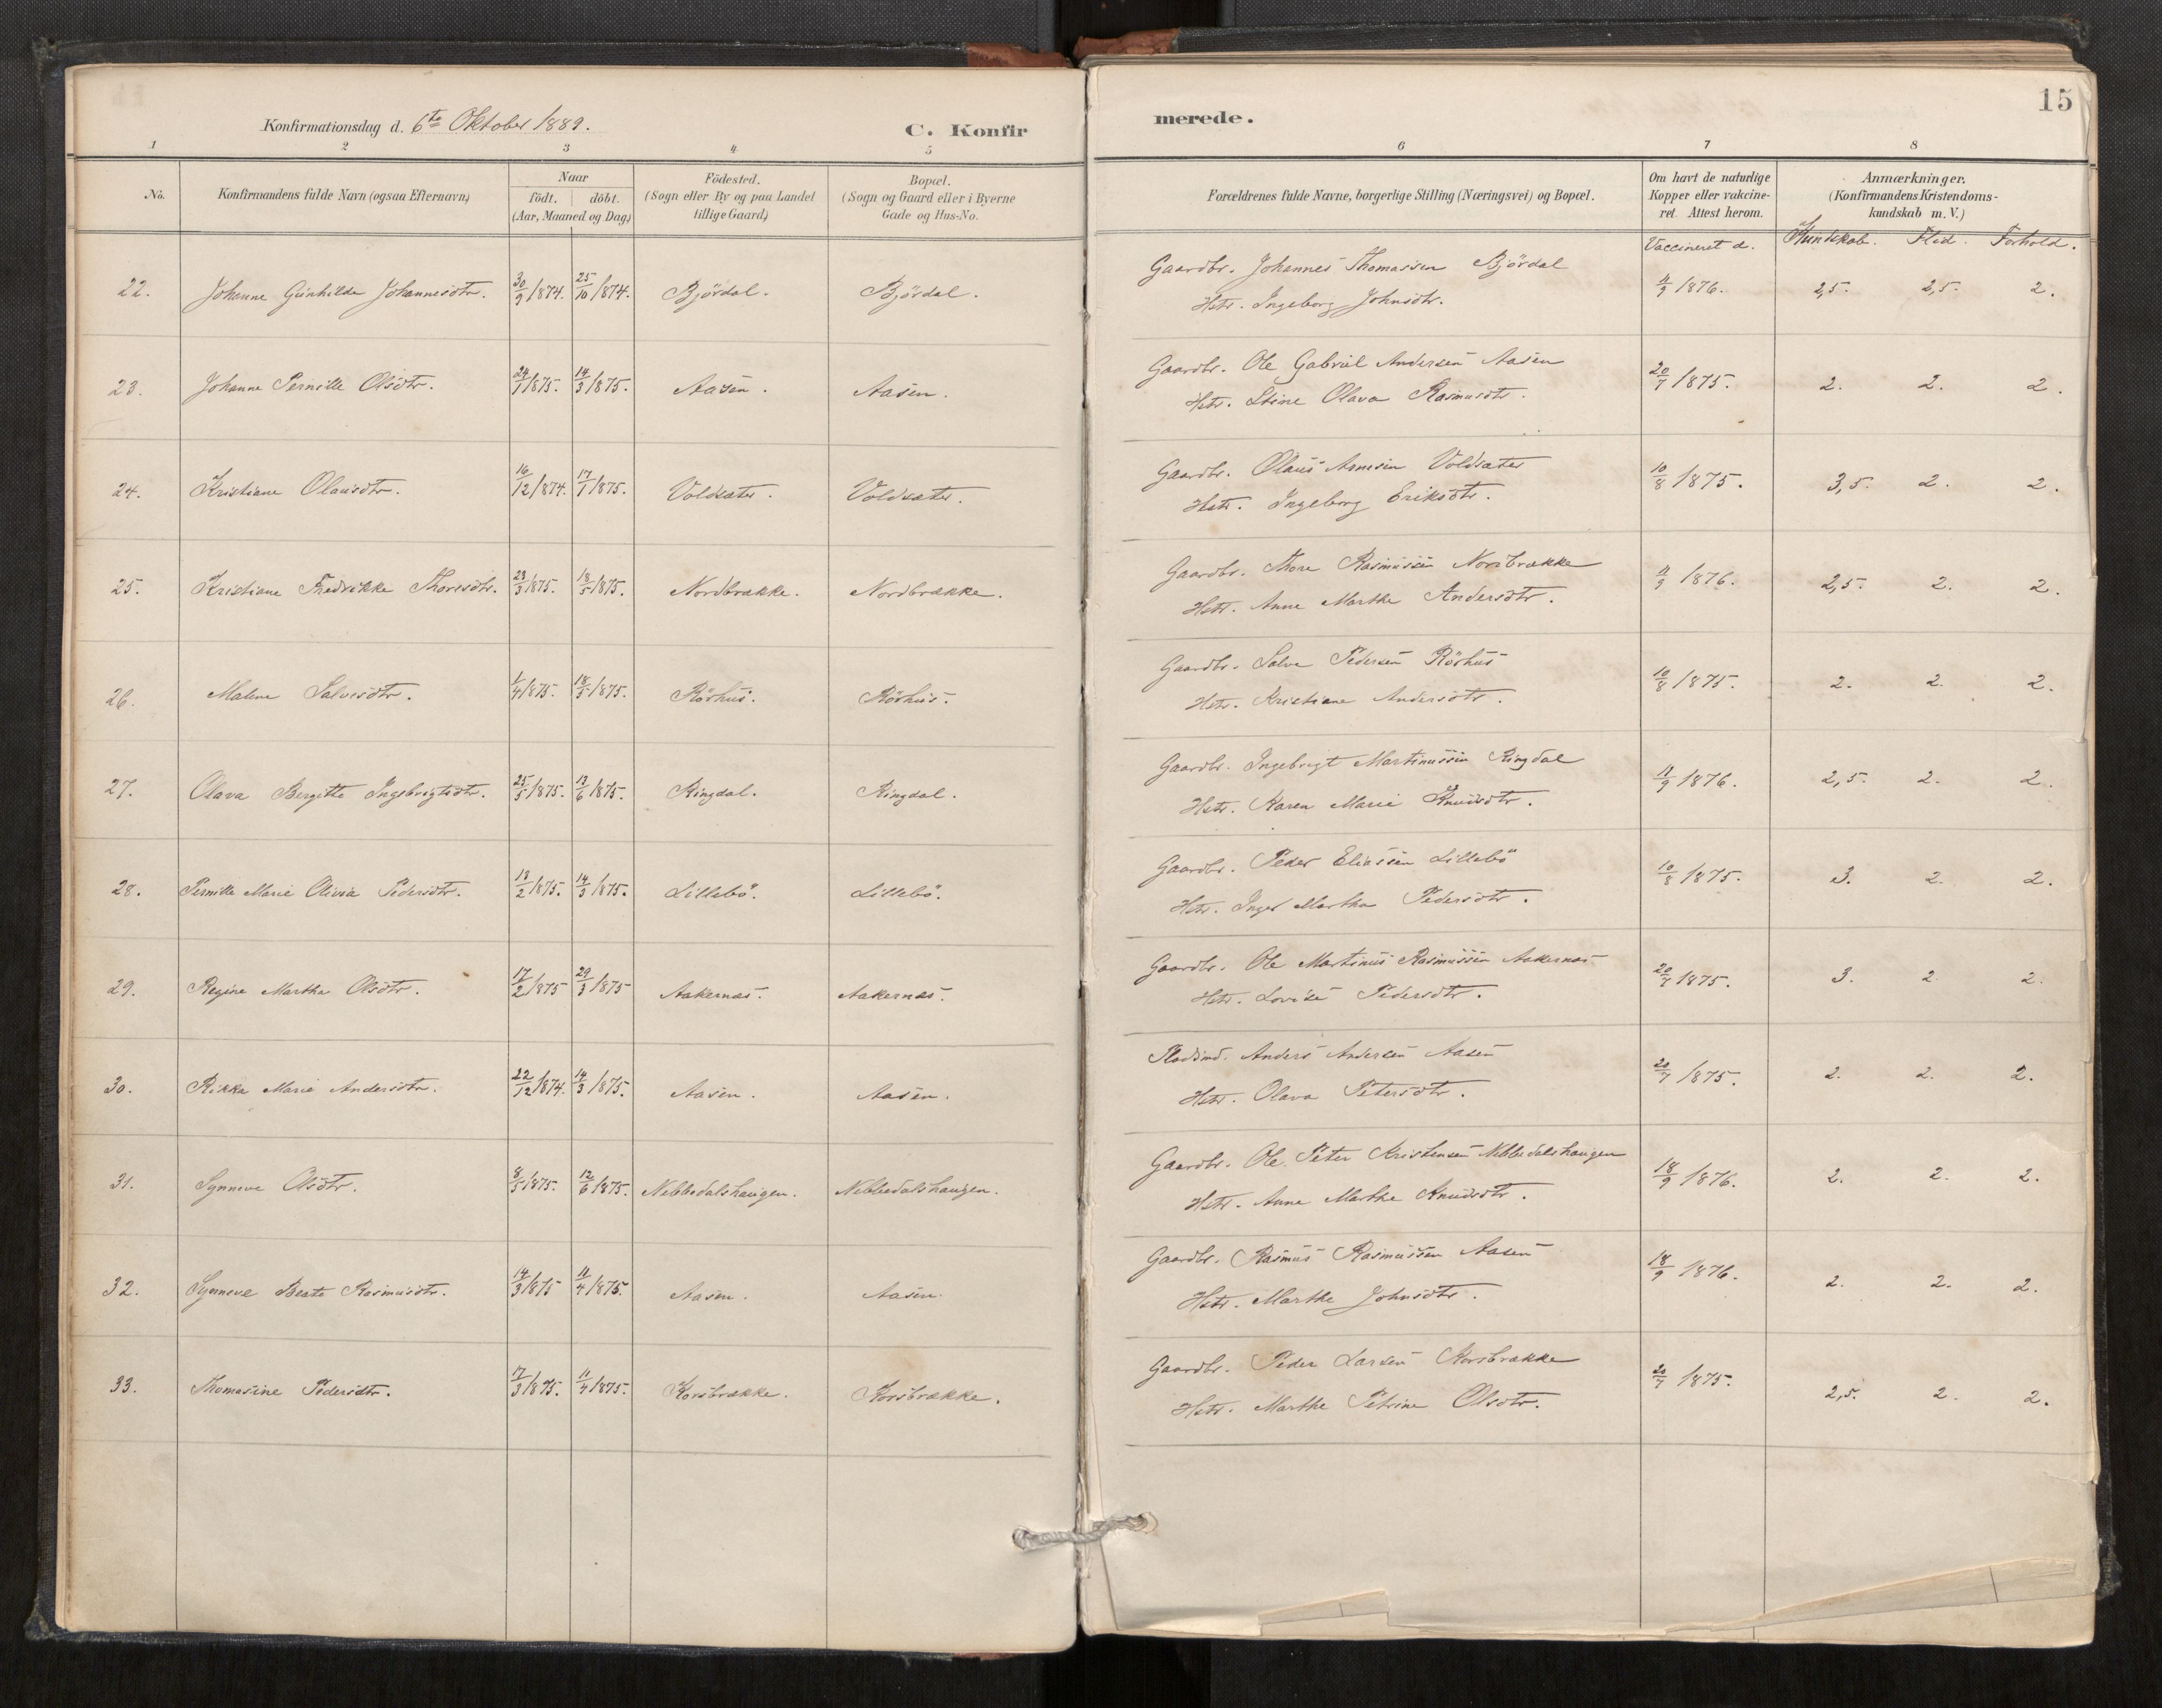 Konfirmationsdag d. 6te Oktober 1889.
C. Konfir
merede.
15
1 2 3 4 5 6 7 8
No.
Konfirmandens fulde Navn (ogsaa Efternavn)
Naar
födt. döbt.
(Aar, Maaned og Dag)
Födested.
(Sogn eller By og paa Landet
tillige Gaard)
Bopæl.
(Sogn og Gaard eller i Byerne
Gade og Hus-No.
Forældrenes fulde Navne, borgerlige Stilling (Næringsvei) og Bopæl.
Om havt de naturlige
Kopper eller vakcine-
ret. Attest herom.
Anmærkninger.
(Konfirmandens Kristendoms-
kundskab m. V.)
Vaccineret d. Kundskab. Flid. Forhold.
Gaardbr. Johannes Thomassen Björdal
22. Johanne Gunhilde Johannesdtr. 30/9 1874. 25/10 1874. Björdal. Björdal. 11/9 1876. 2,5. 2,5. 2.
Hstr. Ingeborg Johnsdtr.
Gaardbr. Ole Gabriel Andersen Aasen
23. Johanne Pernille Olsdtr. 24/1 1875. 14/3 1875. Aasen. Aasen. 20/7 1875. 2. 2. 2.
Hstr. Stine Olava Rasmusdtr.
Gaardbr. Olaus Arnesen Voldsæter
24. Kristiane Olausdtr. 16/12 1874. 17/1 1875. Voldsæter. Voldsæter. 10/8 1875. 3,5. 2. 2.
Hstr. Ingeborg Eriksdtr.
Gaardbr. Thore Rasmussen Nordbrække
25. Kristiane Fredrikke Thoresdtr. 23/3 1875. 18/5 1875. Nordbrække. Nordbrække. 11/9 1876. 2,5. 2. 2.
Hstr. Anne Marthe Andersdtr.
Gaardbr. Salve Pedersen Rörhus
26. Malene Salvesdtr. 1/4 1875. 18/5 1875. Rörhus. Rörhus. 10/8 1875. 2. 2. 2.
Hstr. Kristiane Andersdtr.
Gaardbr. Ingebrigt Martinussen Ringdal
27. Olava Bergitte Ingebrigtsdtr. 25/5 1875. 13/6 1875. Ringdal. Ringdal. 11/9 1876. 2,5. 2. 2.
Hstr. Karen Marie Knudsdtr.
Gaardbr. Peder Eliassen Lillebö
28. Pernille Marie Olivia Pedersdtr. 18/2 1875. 14/3 1875. Lillebö. Lillebö. 10/8 1875. 3. 2. 2.
Hstr. Inger Martha Pedersdtr.
Gaardbr. Ole Martinus Rasmussen Aakernæs
29. Regine Martha Olsdtr. 17/2 1875 29/3 1875 Aakernæs. Aakernæs. 20/7 1875. 3. 2. 2.
Hstr. Lovise Pedersdtr.
Pladsmd. Anders Andersen Aasen
30. Rikka Marie Andersdtr. 22/12 1874. 14/3 1875. Aasen. Aasen. 20/7 1875. 2. 2. 2.
Hstr. Olava Petersdtr.
Gaardbr. Ole Peter Kristensen Nebbedalshaugen
31. Synneve Olsdtr. 8/5 1875. 12/6 1875. Nebbedalshaugen. Nebbedalshaugen. 18/9 1876. 2. 2. 2.
Hstr. Anne Marthe Knudsdtr.
Gaardbr. Rasmus Rasmussen Aasen
32. Synneve Beate Rasmusdtr. 14/3 1875 11/4 1875. Aasen. Aasen. 18/9 1876. 2. 2. 2.
Hstr. Marthe Johnsdtr.
Gaardbr. Peder Larsen Korsbrække
33. Thomasine Pedersdtr. 17/3 1875. 11/4 1875. Korsbrække. Korsbrække. 20/7 1875. 2,5. 2. 2.
Hstr. Marthe Petrine Olsdtr.